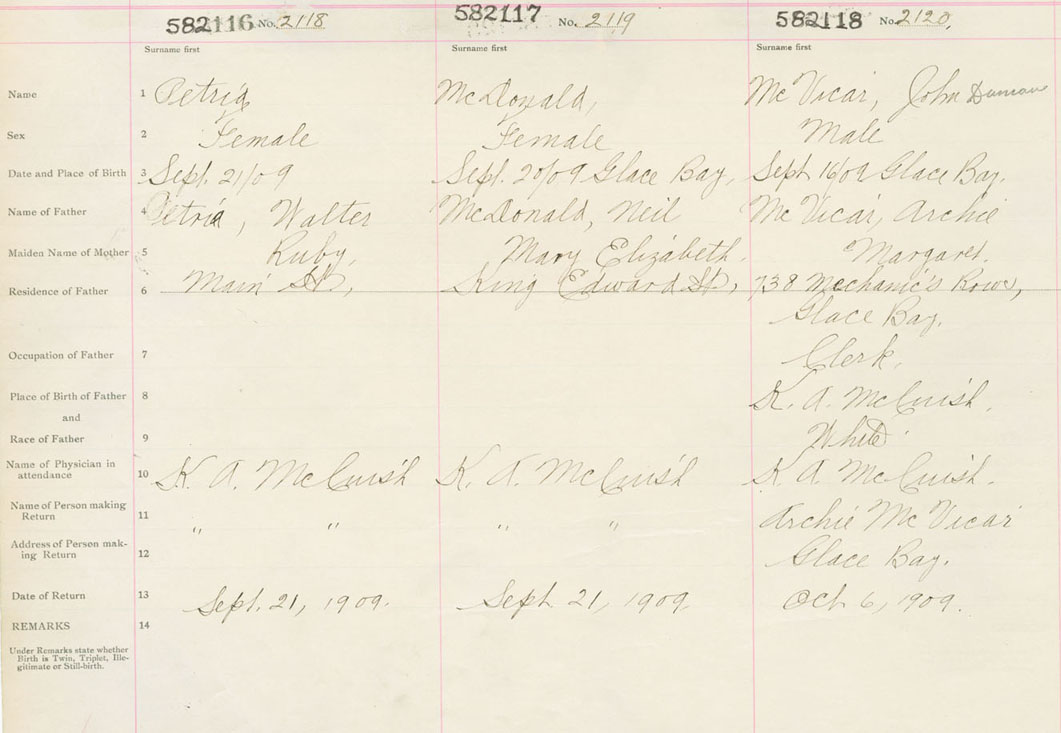 582116 No. 2118
582117 No. 2119
582118 No. 2120
Surname first
Surname first
Surname first
Name 1 Petrie McDonald, McVicar, John Duncan
Sex 2 Female Female Male
Date and Place of Birth 3 Sept. 21/09 Sept. 20/09 Glace Bay, Sept 16/09 Glace Bay.
Name of Father 4 Petrie, Walter McDonald, Neil McVicar, Archie
Maiden Name of Mother 5 Ruby, Mary Elizabeth. Margaret.
Residence of Father 6 Main St, King Edward St, 738 Mechanic's Rowe,
Glace Bay.
Occupation of Father 7 Clerk.
Place of Birth of Father 8 K. A. McCuish.
and
Race of Father 9 White
Name of Physician in
attendance 10 K. A. McCuish K. A. McCuish K A. McCuish.
Name of Person making
Return 11 " " " " Archie McVicar
Address of Person mak-
ing Return 12 Glace Bay.
Date of Return 13 Sept. 21, 1909. Sept 21, 1909 Oct 6, 1909.
REMARKS 14
Under Remarks state whether
Birth is Twin, Triplet, Ille-
gitimate or Still-birth.